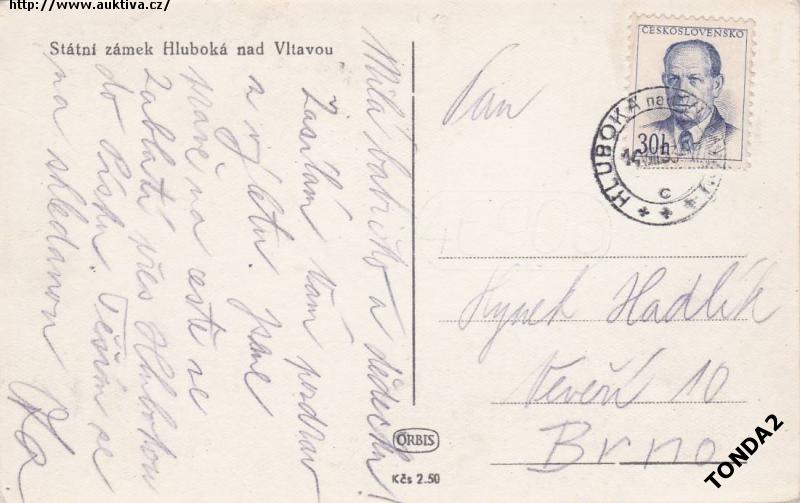 http://www.auktiva.cz/
Státní zámek Hluboká nad Vltavou
Milá babičko a dědečku!
Zasílám Vám pozdrav
z výletu. Jsme
právě na cestě ze
Záblatí přes Hlubokou
do Písku. Těším se
na shledanou
ČESKOSLOVENSKO
30h
HLUBOKÁ nad
c
Pan
Hynek Hadlík
Veveří 10
Brno
ORBIS
Kčs 2.50
TONDA2